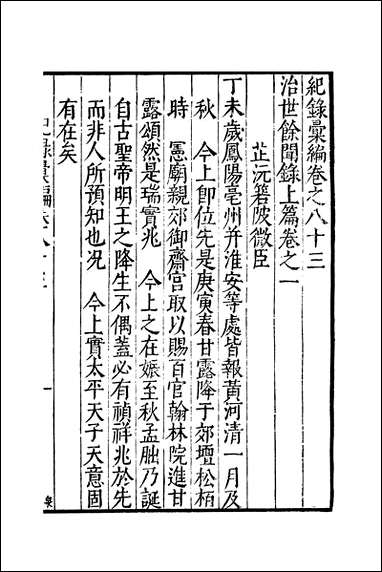 紀錄彙編卷之八十三
治世餘聞錄上篇卷之一
芷沅箬陂微臣
丁未歲鳳陽亳州并淮安等處皆報黃河清一月及
秋　今上卽位先是庚寅春甘露降于郊壇松栢
時　憲廟親郊御齋宮取以賜百官翰林院進甘
露頌然是瑞實兆　今上之在娠至秋孟朏乃誕
自古聖帝明王之降生不偶蓋必有禎祥兆於先
而非人所預知也况　今上實太平天子天意固
有在矣
一